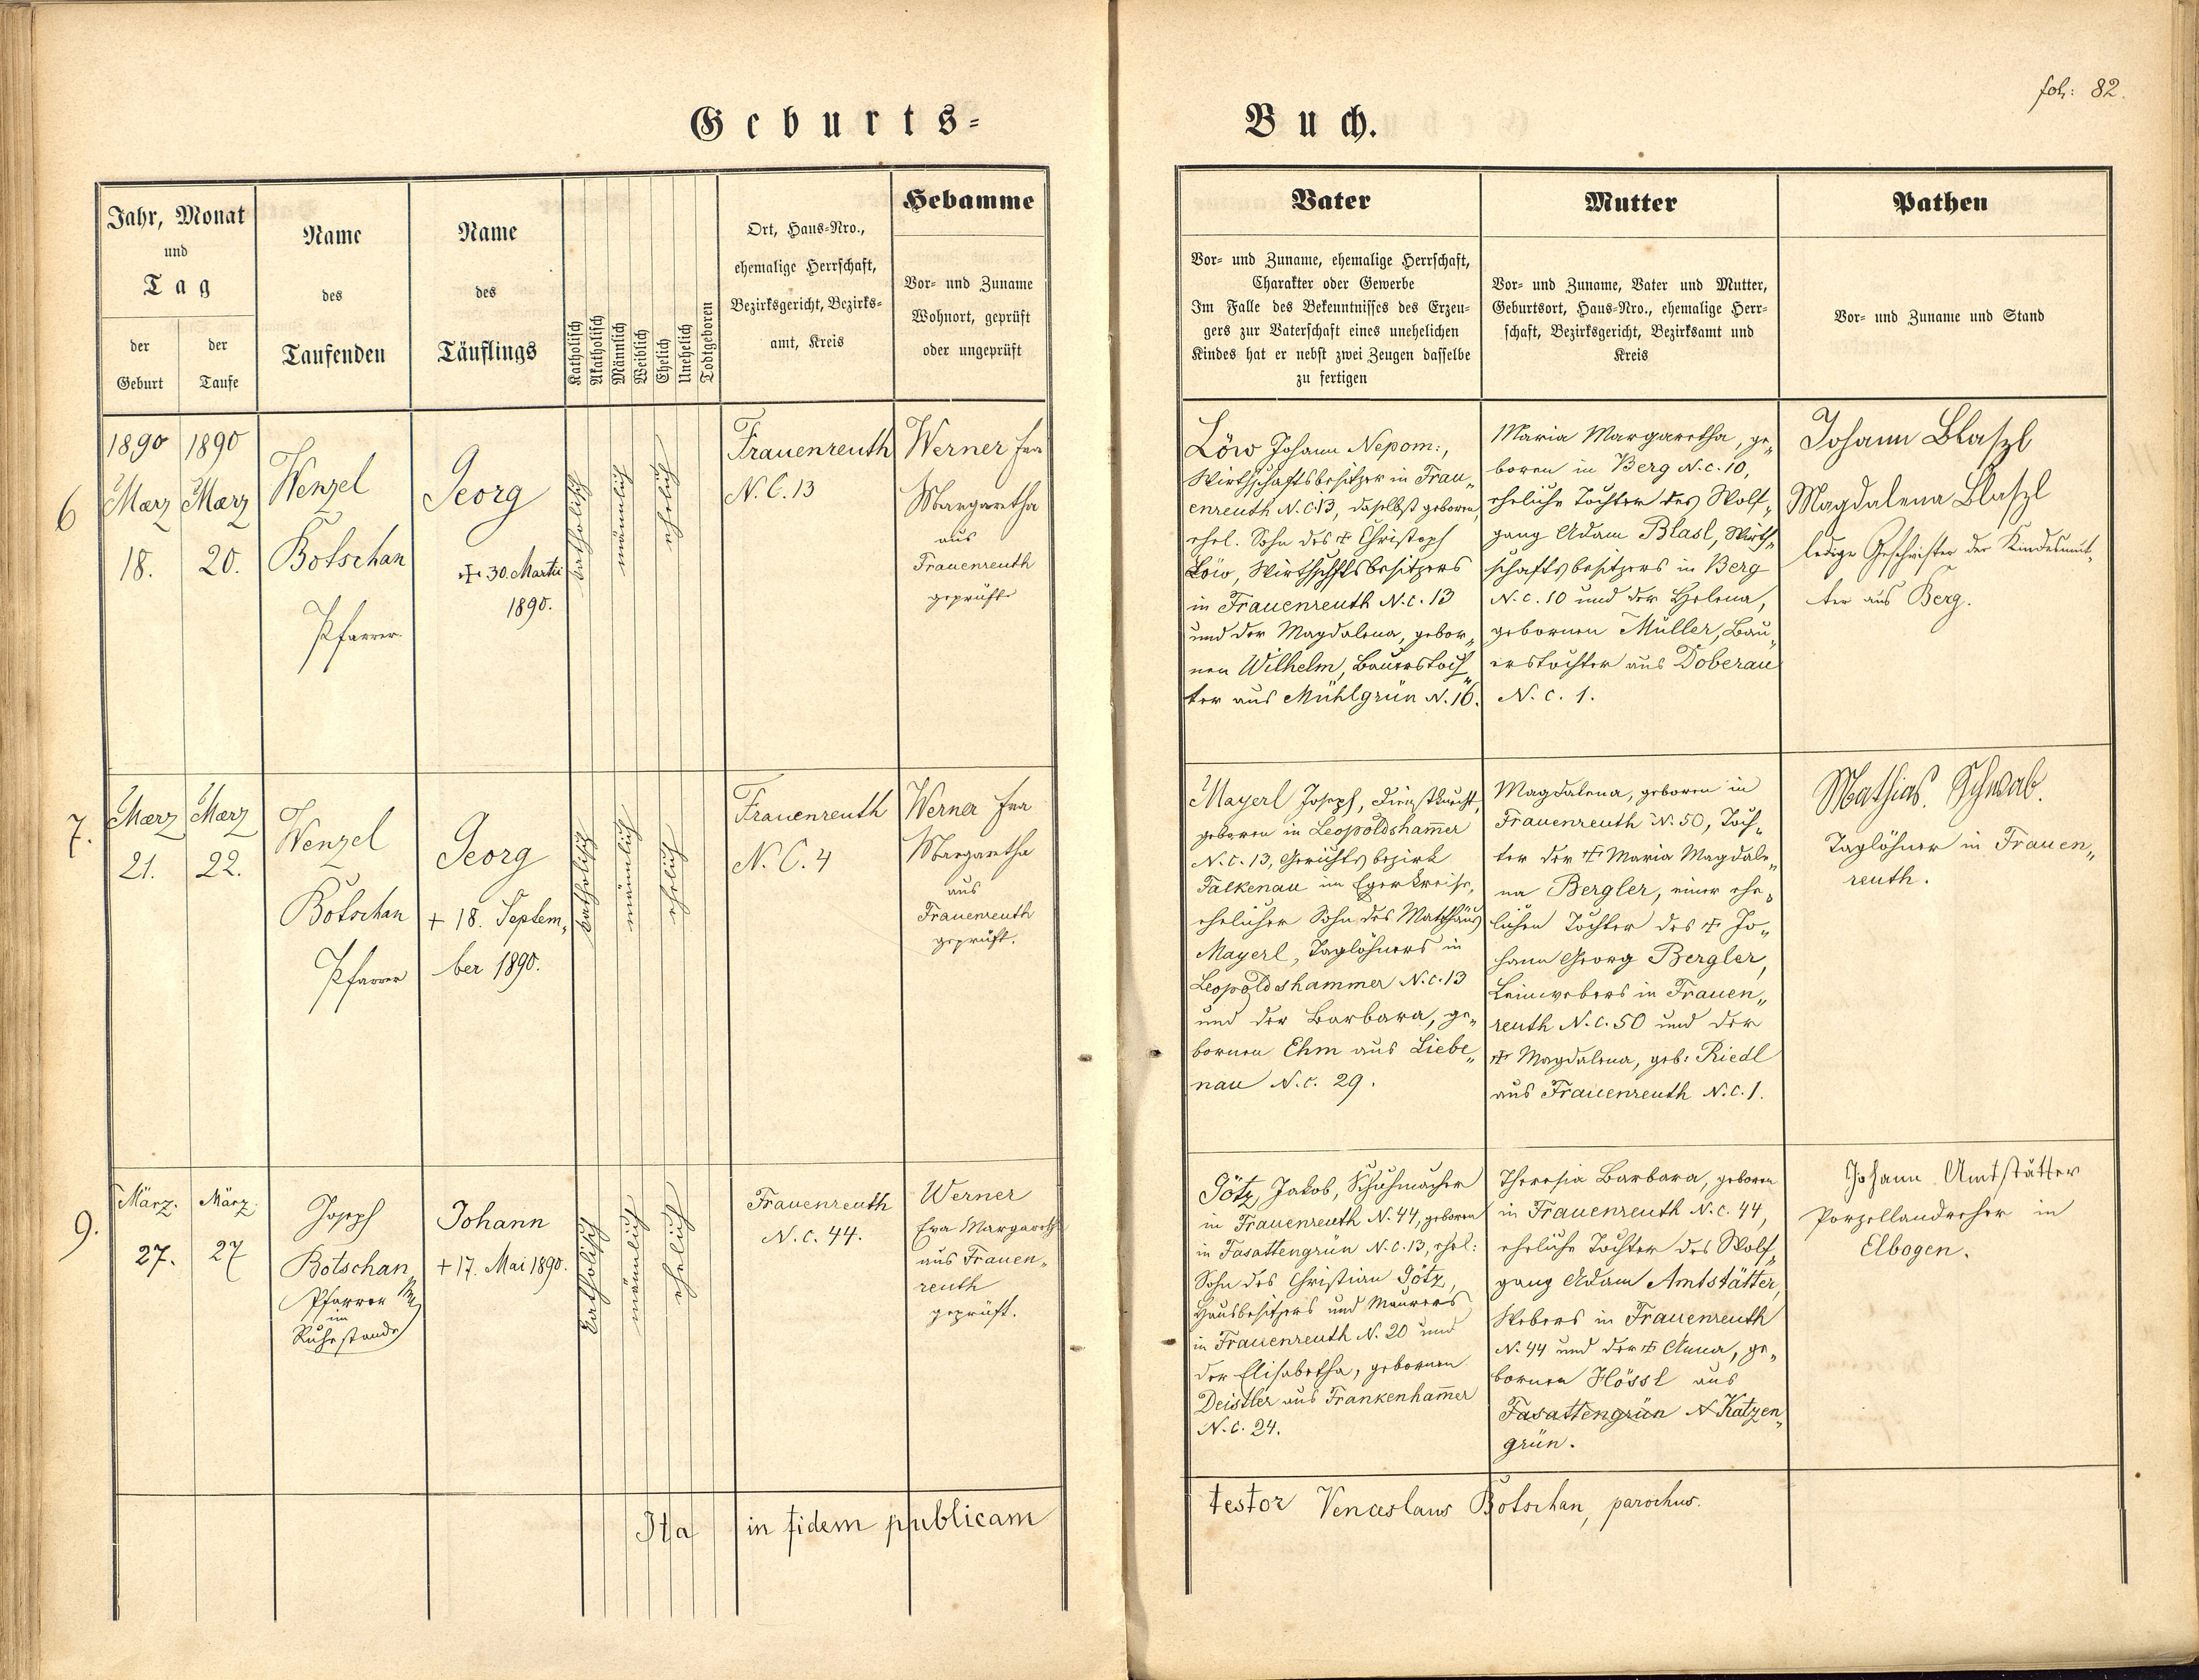 fol: 82.
Geburts-
Buch.
Jahr, Monat
und
Tag
der
Geburt
der
Taufe
Name
des
Taufenden
Name
des
Täuflings
Katholisch
Akatholisch
Männlich
Weiblich
Ehelich
Unehelich
Todtgeboren
Ort, Haus-Nro.,
ehemalige Herrschaft,
Bezirksgericht, Bezirks-
amt, Kreis
Hebamme
Vor- und Zuname
Wohnort, geprüft
oder ungeprüft
Vater
Vor- und Zuname, ehemalige Herrschaft,
Charakter oder Gewerbe
Im Falle des Bekenntnisses des Erzeu-
gers zur Vaterschaft eines unehelichen
Kindes hat er nebst zwei Zeugen dasselbe
zu fertigen
Mutter
Vor- und Zuname, Vater und Mutter,
Geburtsort, Haus-Nro., ehemalige Herr-
schaft, Bezirksgericht, Bezirksamt und
Kreis
Pathen
Vor- und Zuname und Stand
6
1890
Mærz
18.
1890
Mærz
20.
Wenzel
Botschan
Pfarrer
Georg
✠ 30. Martii
1890.
katholisch
männlich
ehelich
Frauenreuth
N. C. 13
Werner Eva
Margaretha
aus
Frauenreuth
geprüft
Löw Johann Nepom:,
Wirthschaftsbesitzer in Frau„
enreuth N.C.13, daselbst geboren,
ehel. Sohn des ✠ Christoph
Löw, Wirthschftsbesitzers
in Frauenreuth N.C. 13
und der Magdalena, gebor„
nen Wilhelm, Bauerstoch„
ter aus Mühlgrün N. 16.
Maria Margaretha, ge„
boren in Berg N.C. 10,
eheliche Tochter des Wolf„
gang Adam Blasl, Wirth„
schaftsbesitzers in Berg
N.C. 10 und der Helena,
gebornen Müller, Bau„
erstochter aus Doberau
N. C. 1.
Johann Blaszl
Magdalena Blaszl
ledige Geschwister der Kindesmut„
ter aus Berg.
7.
Mærz
21.
Mærz
22.
Wenzel
Botschan
Pfarrer
Georg
+ 18. Septem„
ber 1890.
katholisch
männlich
ehelich
Frauenreuth
N. C. 4
Werner Eva
Margaretha
aus
Frauenreuth
geprüft.
Mayerl Joseph, Dienstknecht,
geboren in Leopoldsham̄er
N.C. 13, Gerichtsbezirk
Falkenau im Egerkreise,
ehelicher Sohn des Matthäus
Mayerl, Taglöhners in
Leopoldshammer N.C. 13
und der Barbara, ge„
bornen Ehm aus Liebe„
nau N.C. 29.
Magdalena, geboren in
Frauenreuth N. 50, Toch„
ter der ✠ Maria Magdale„
na Bergler, einer ehe„
lichen Tochter des ✠ Jo„
hann Georg Bergler,
Leinwebers in Frauen„
reuth N.C. 50 und der
✠ Magdalena, geb: Riedl
aus Frauenreuth N.C. 1.
Mathias Schwab.
Taglöhner in Frauen„
reuth.
9.
März.
27.
März.
27
Joseph
Botschan
Pfarrer
im
Ruhestande
Johann
+ 17. Mai 1890.
katholisch
männlich
ehelich
Frauenreuth
N. C. 44.
Werner
Eva Margareth
aus Frauen„
reuth
geprüft.
Götz, Jakob, Schuhmacher
in Frauenreuth N. 44, geboren
in Fasattengrün N.C. 13, ehel:
Sohn des Christian Götz,
Hausbesitzers und Maurers
in Frauenreuth N. 20 und
der Elisabetha, gebornen
Deistler aus Frankenham̄er
N.C. 24.
Theresia Barbara, geboren
in Frauenreuth N.C. 44,
eheliche Tochter des Wolf„
gang Adam Amtstätter,
Webers in Frauenreuth
N. 44 und der ✠ Anna, ge„
bornen Hössl aus
Fasattengrün N Katzen„
grün.
Johann Amtstätter
Porzellandreher in
Elbogen.
Ita in fidem publicam
testor Venceslaus Botschan, parochus.